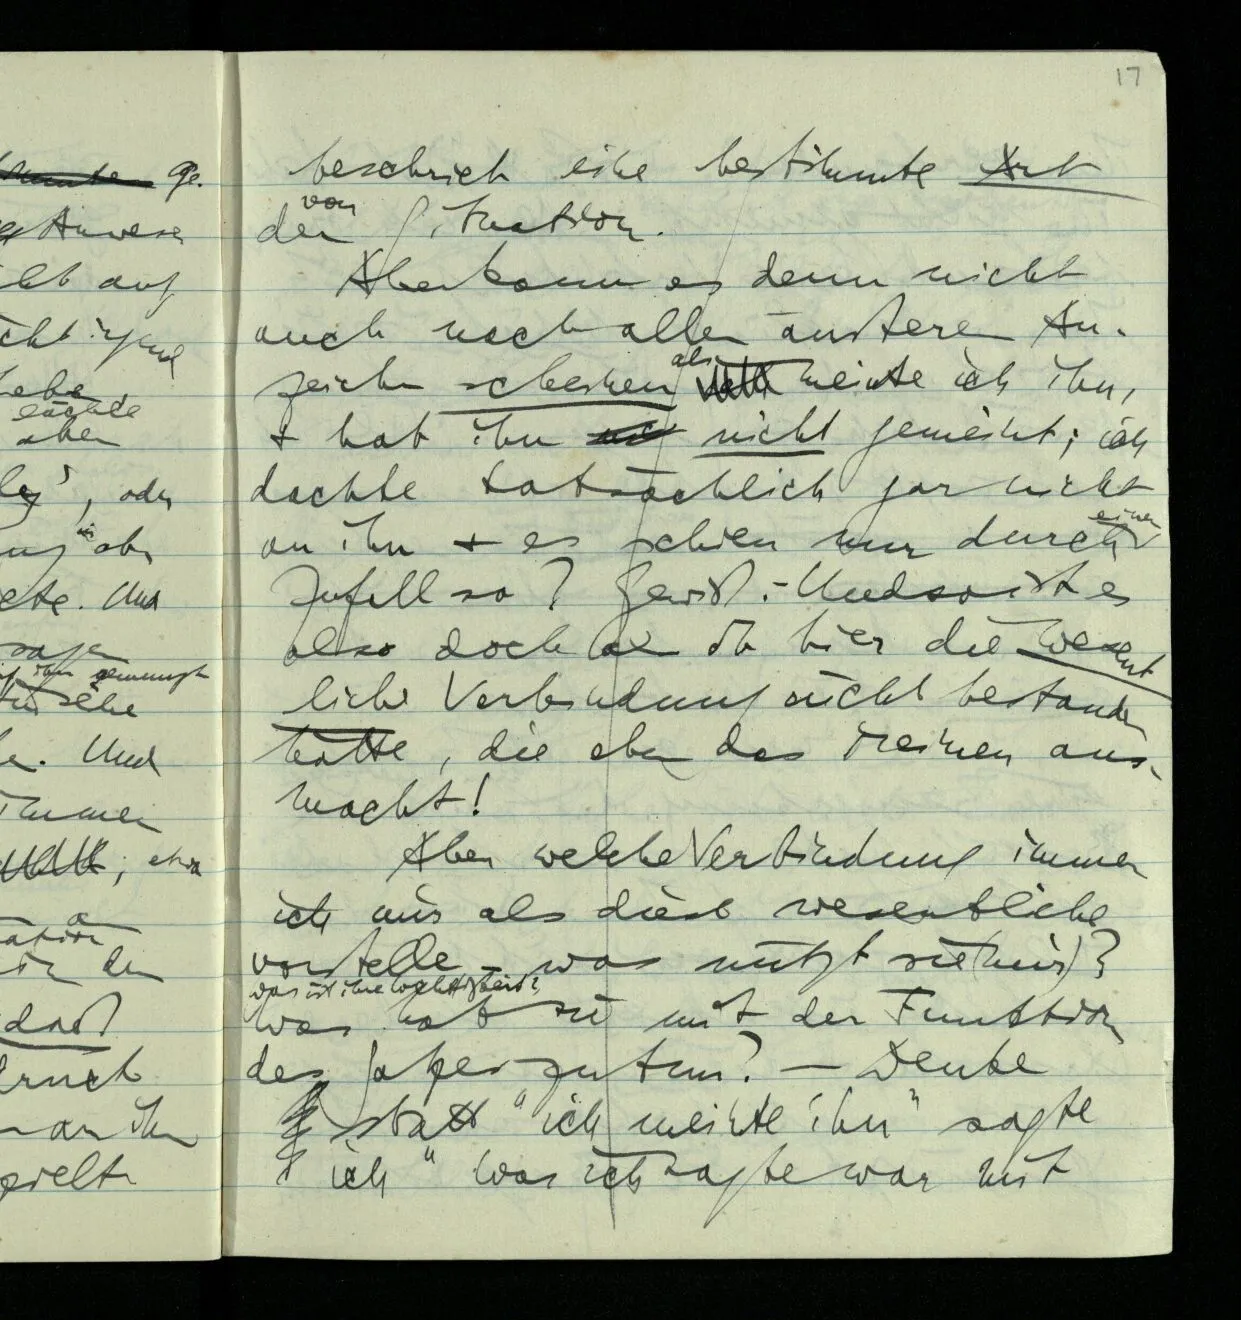 17
beschrieb eine bestimmte Art
von
der Situation.
Aber kann es denn nicht
auch nach allen äusseren An-
als
zeichen scheinen meinte ich ihn,
+ hab ihn nicht gemeint; ich
dachte tatsächlich gar nicht
einen
an ihn + es schien nur durch
Zufall so? Gewiß. – Und so ist es
also doch als ob hier die wesent
liche Verbindung nicht bestanden
hätte, die eben das Meinen aus-
macht!
Aber welche Verbindung immer
ich mir als diese wesentliche
vorstelle – was nützt sie (mir)?
was ist ihre Wichtigkeit?
Was hat sie mit der Funktion
des Satzes zu tun? — Denke
statt "ich meinte ihn" sagte
ich "Was ich sagte war mit
ge.
Anwese
auf
lächle
aber
, oder
aber
Und
sagen
Und
immer
; etwa
in den
daß
an ihn